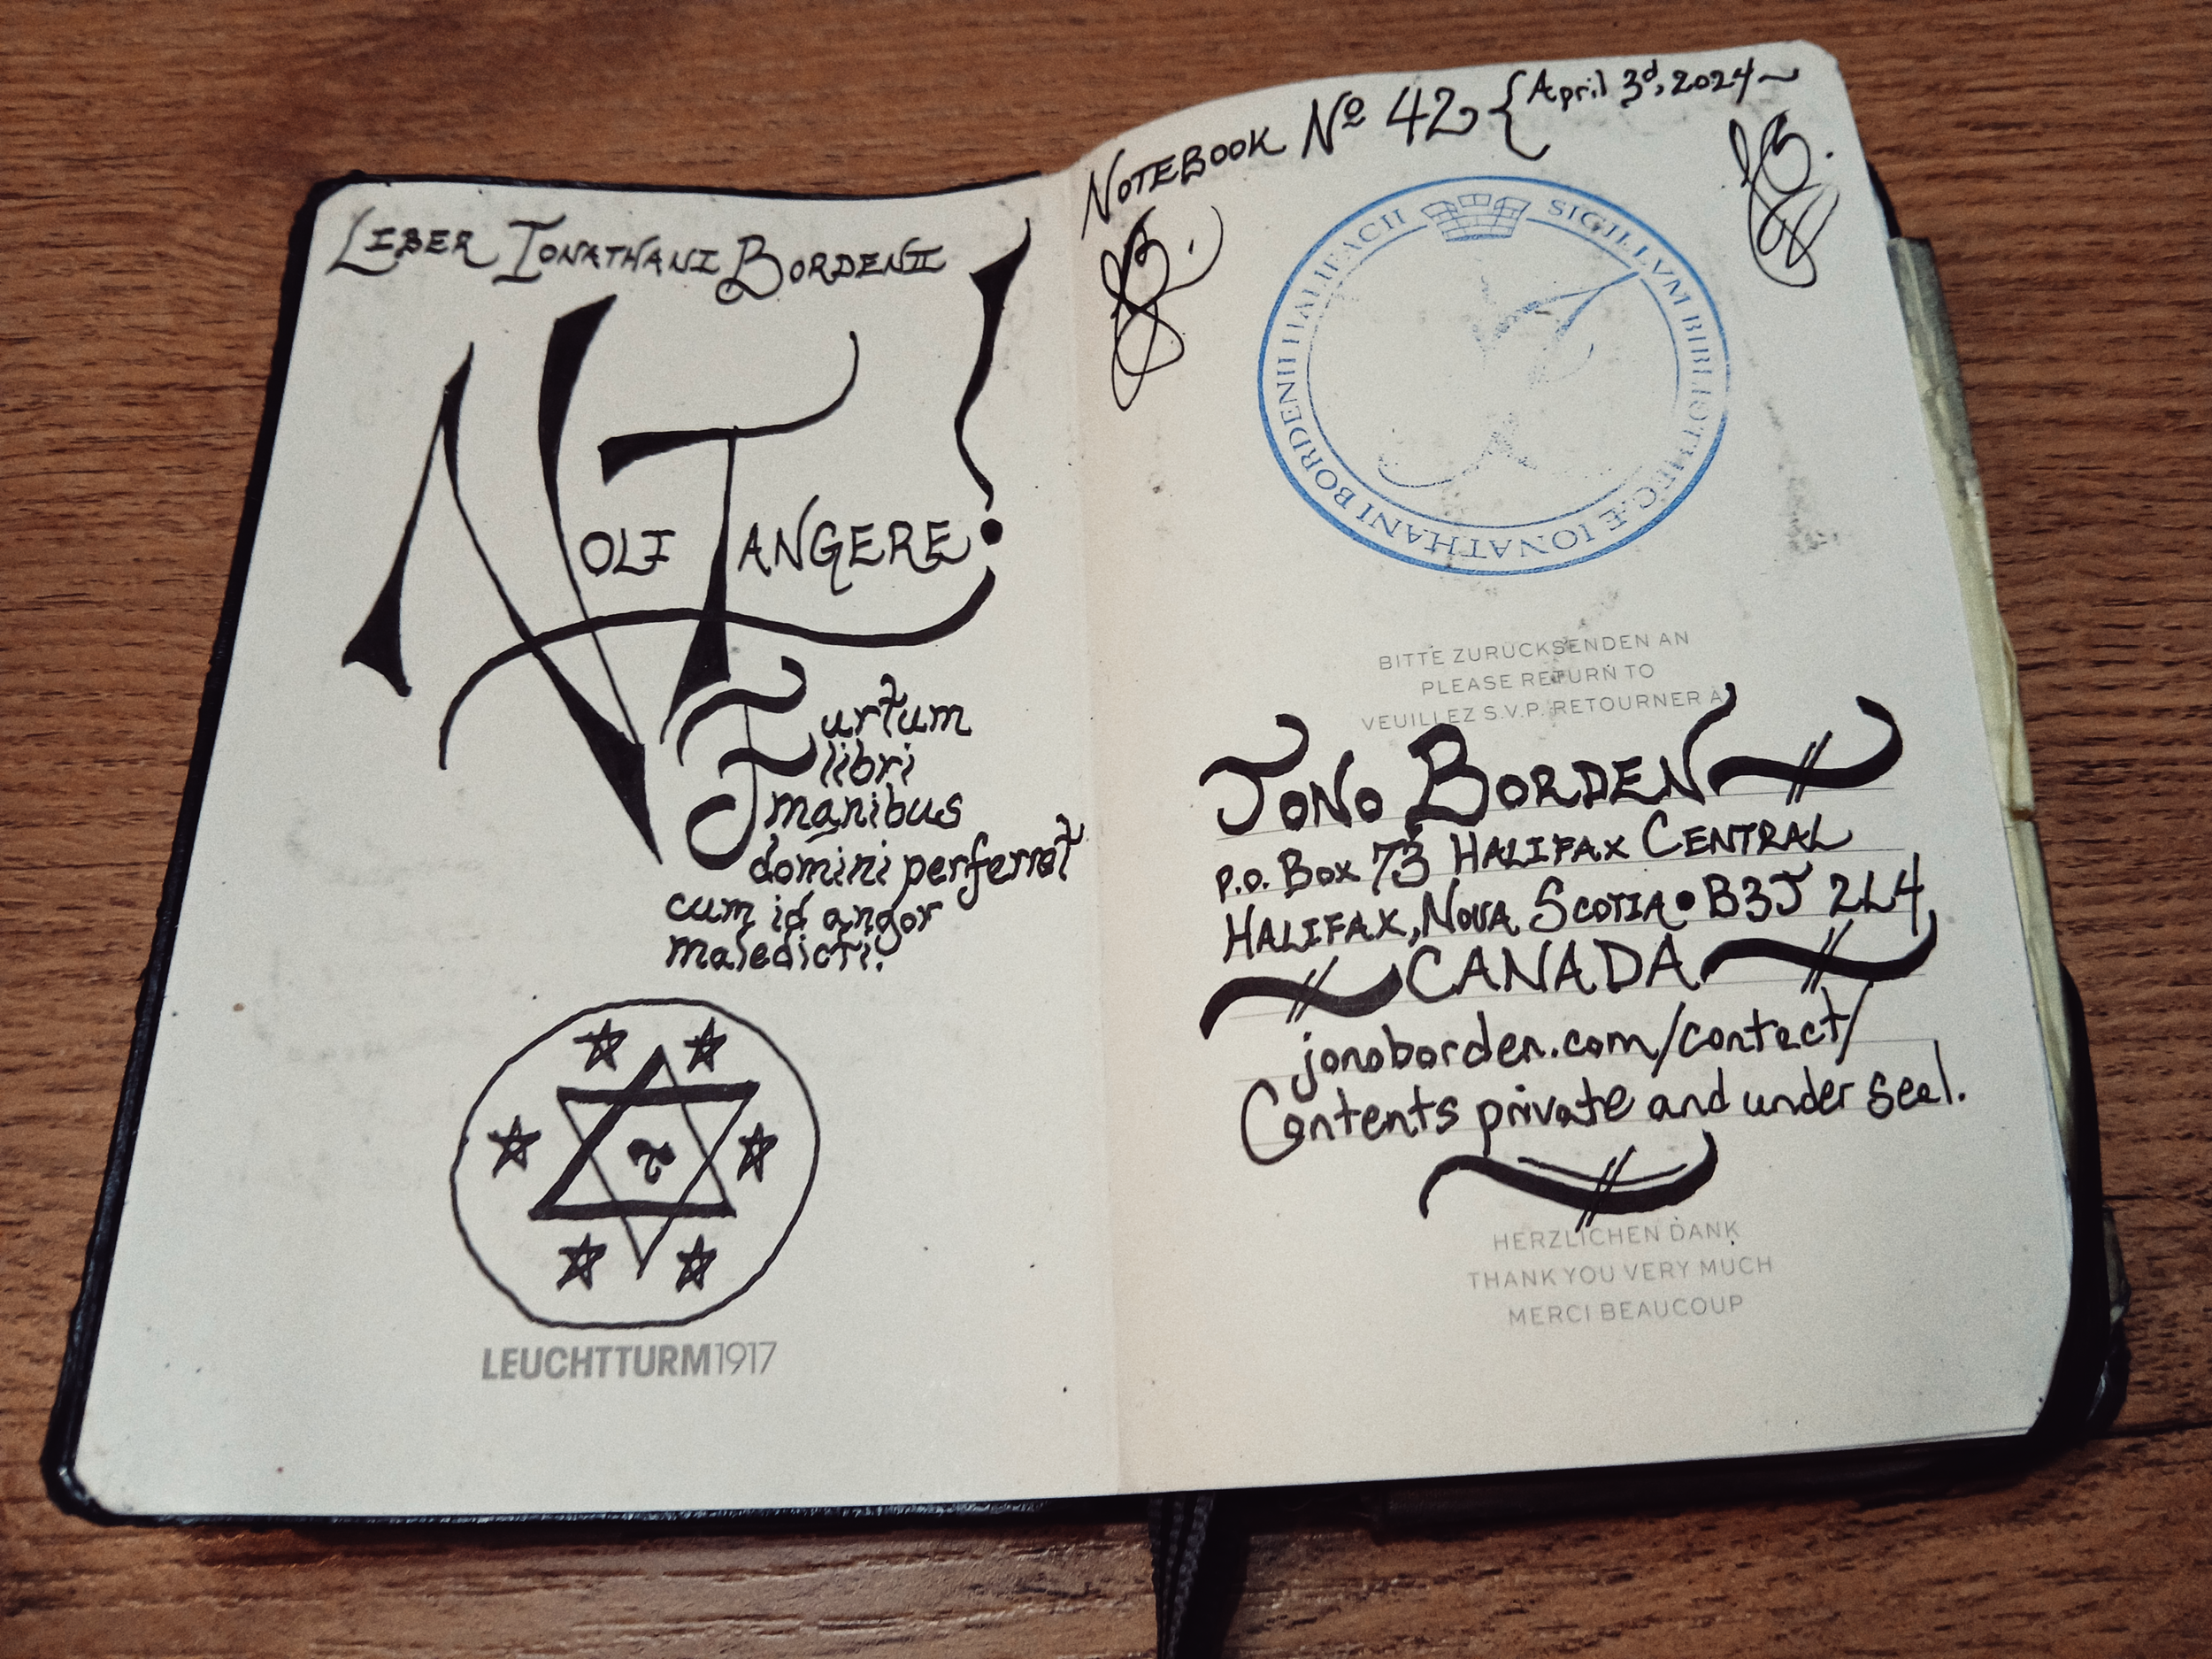 LIBER IONATHANI BORDENII
NOLI TANGERE!
Furtum
libri
manibus
domini perferret
cum id angor
maledicti.
LEUCHTTURM1917
NOTEBOOK Nº 42 { April 3d, 2024~
SIGILLVM BIBLIOTHECÆ IONATHANI BORDENII HALIFACII
BITTE ZURÜCKSENDEN AN
PLEASE RETURN TO
VEUILLEZ S.V.P. RETOURNER À
JONO BORDEN
P.O. BOX 73 HALIFAX CENTRAL
HALIFAX, NOVA SCOTIA • B3J 2L4
CANADA
jonoborden.com/contact/
Contents private and under seal.
HERZLICHEN DANK
THANK YOU VERY MUCH
MERCI BEAUCOUP